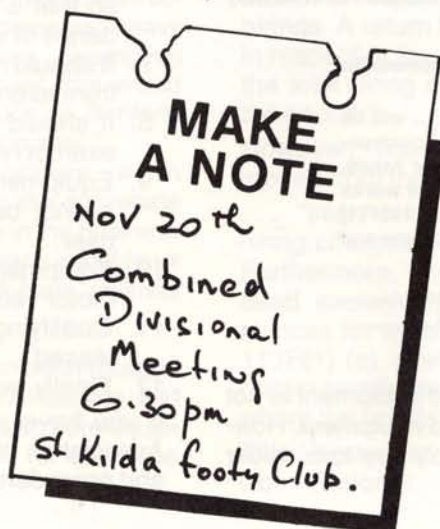 MAKE
A NOTE
Nov 20th
Combined
Divisional
Meeting
6.30pm
St Kilda footy Club.